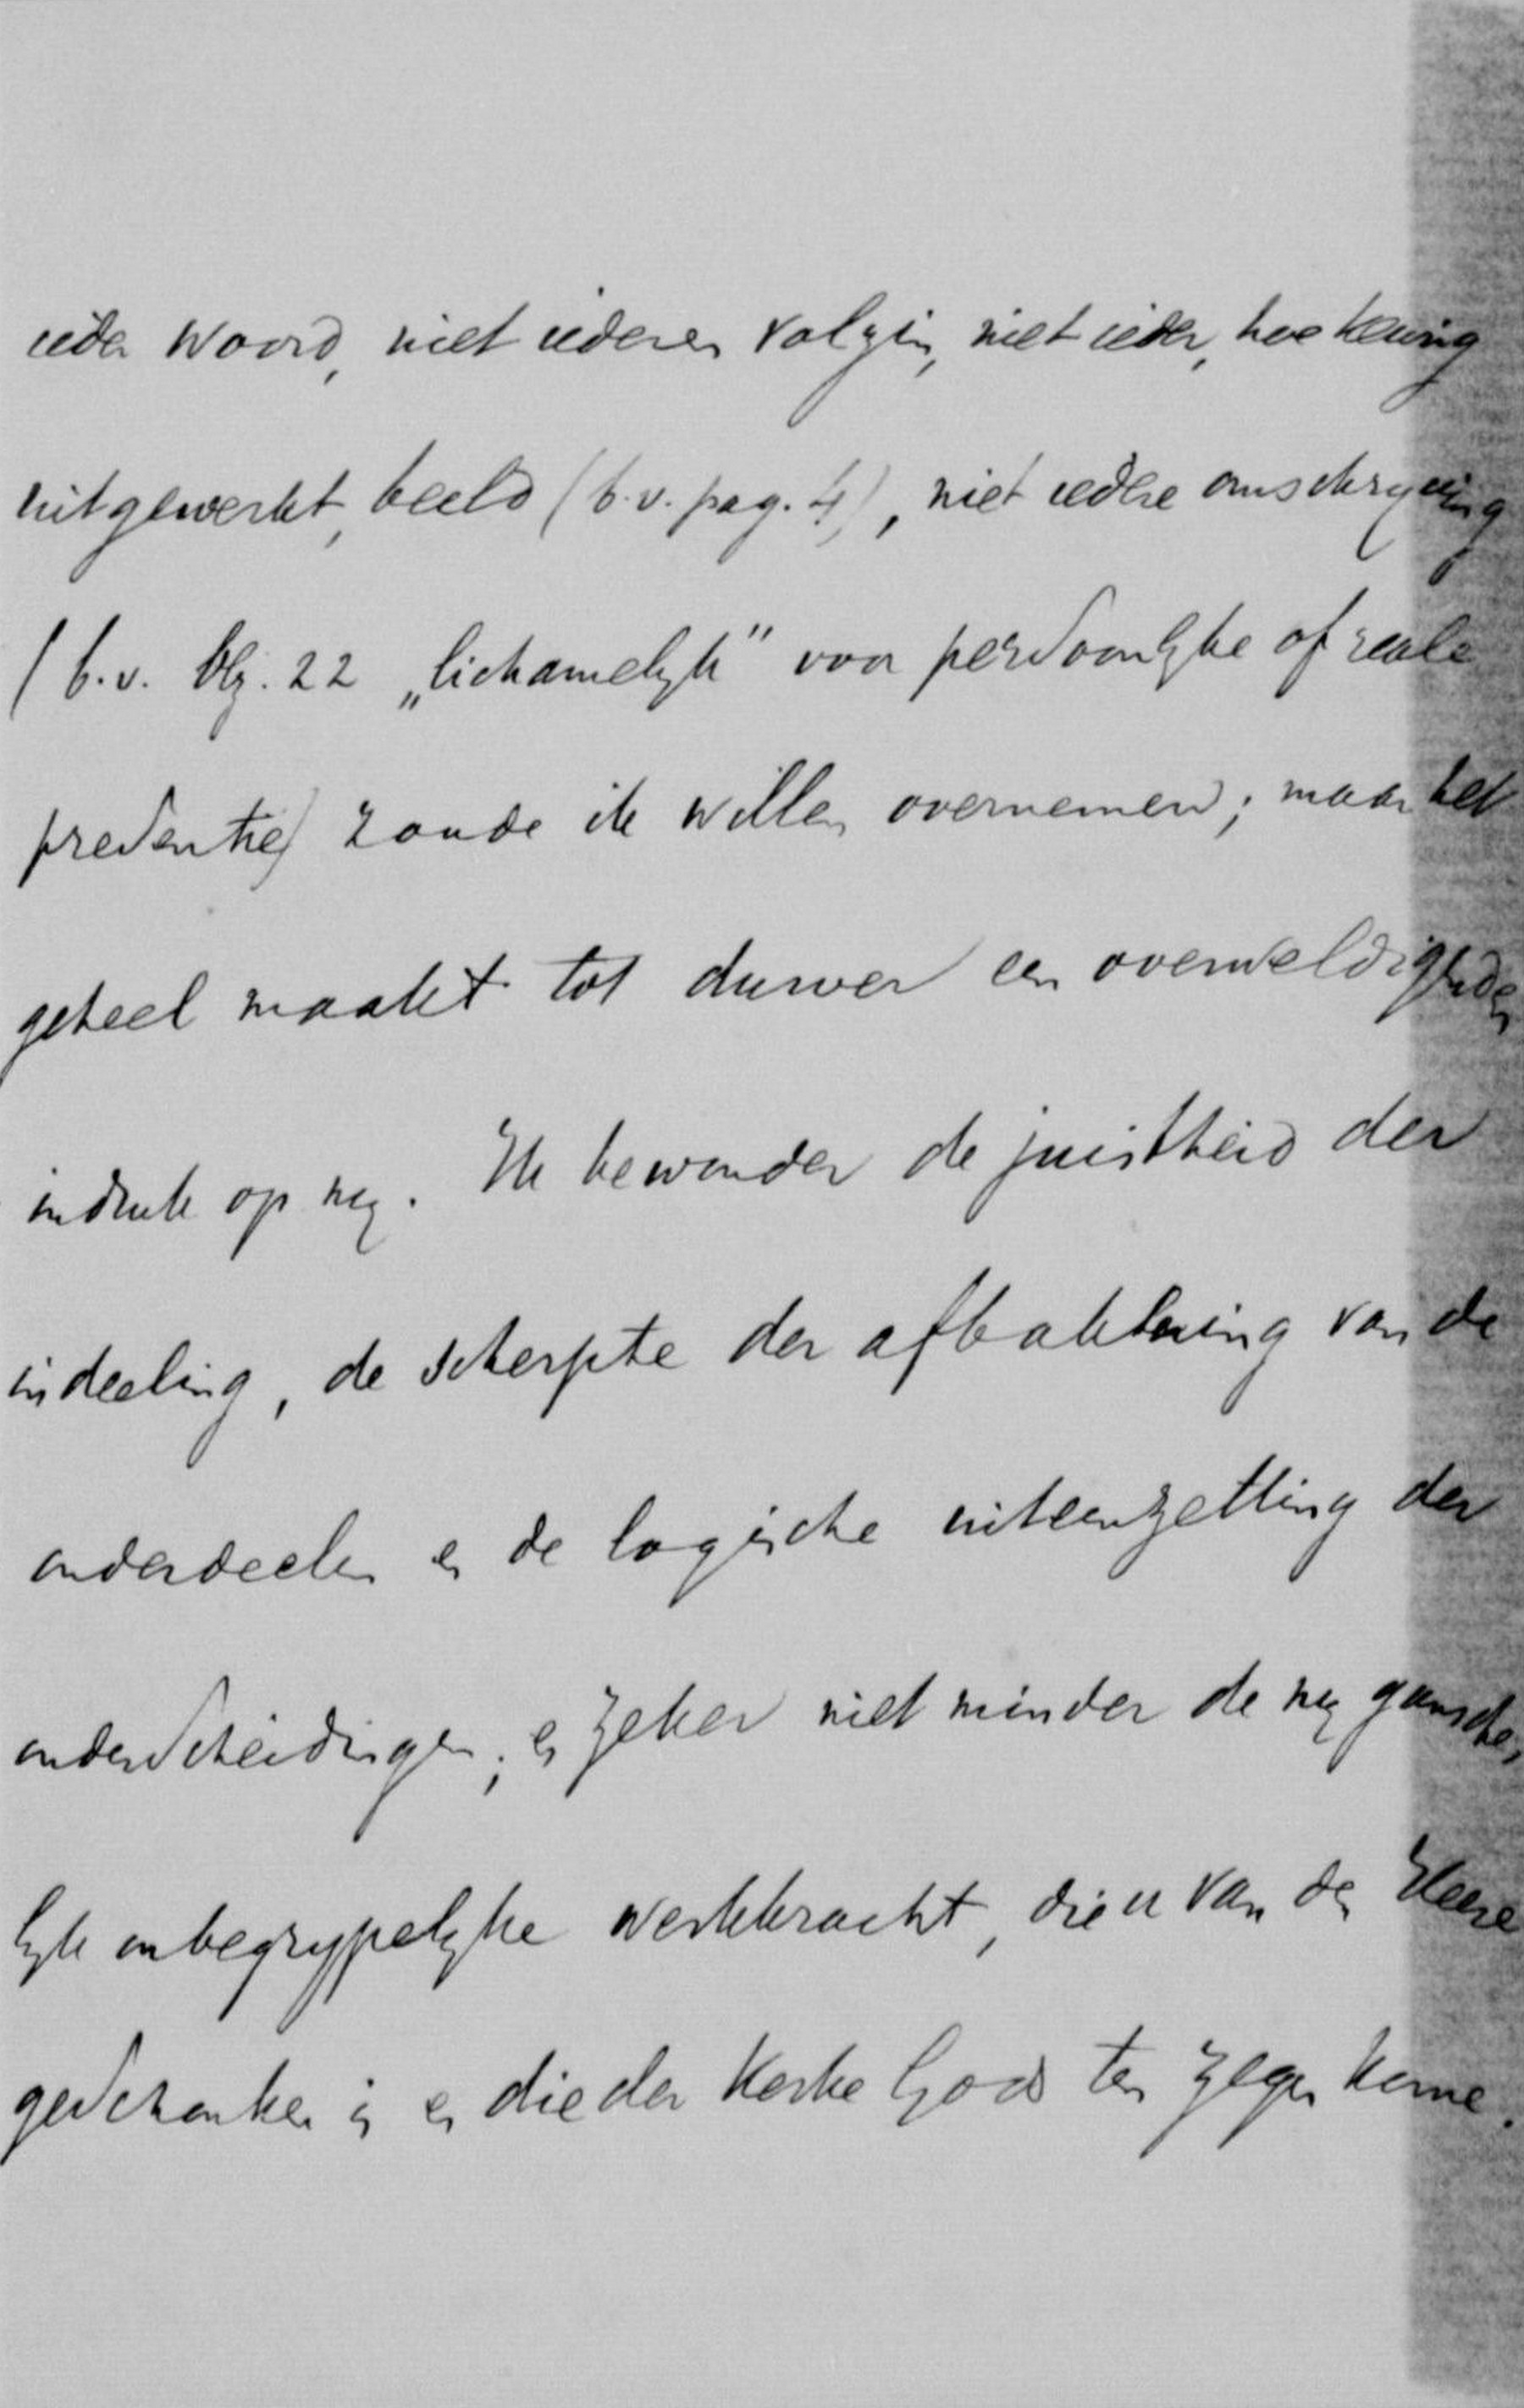 ieder woord, niet iederen volzin, niet ieder, hoe keurig
uitgewerkt, beeld (b.v. pag. 4), niet iedere omschrijving
(b.v. blz. 22 „lichamelijk" voor persoonlijke of reale
presentie) zoude ik willen overnemen; maar het
geheel maakt tot dusver een overweldigenden
indruk op mij. Ik bewonder de juistheid der
indeeling, de scherpte der afbakening van de
onderdeelen en de logische uiteenzetting der
onderscheidingen; en zeker niet minder de mij gansche
lijk onbegrijpelijke werkkracht, die u van den Heere
geschonken is en die der Kerke Gods ten zegen kome.